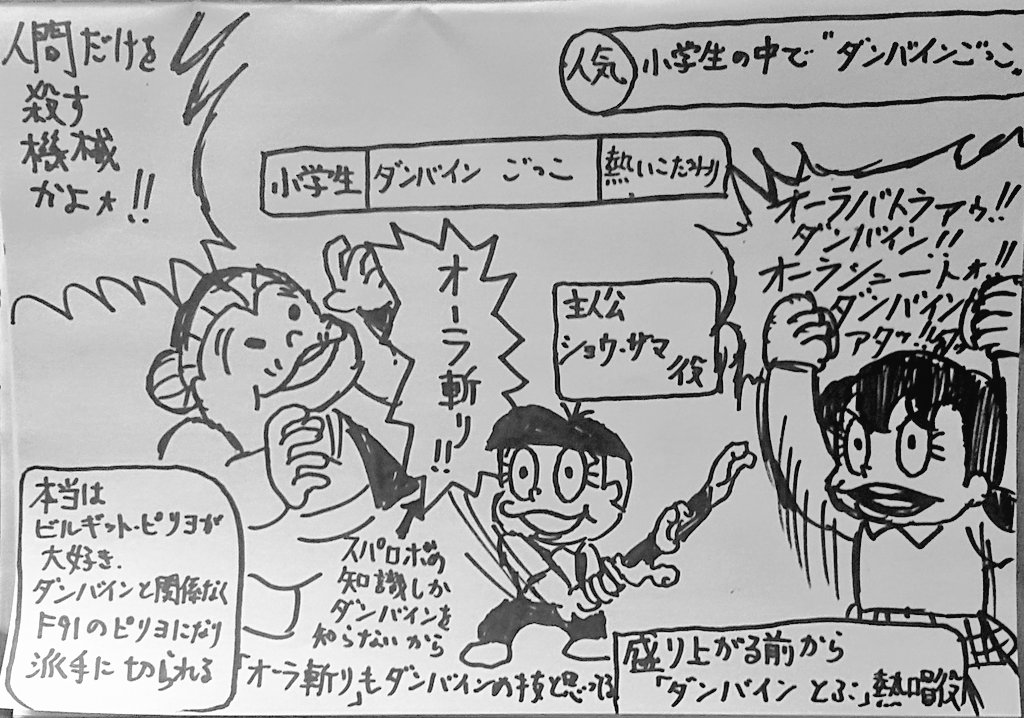 人気 小学生の中で"ダンバインごっこ"
小学生 ダンバイン ごっこ 熱いこだわり
人間だけを
殺す
機械
かよォ!!
オーラバトラァゥ!!
ダンバイン!!
オーラシュートォ!!
ダンバイン
アタッ!!タッ
オーラ斬り!!
主人公
ショウ・ザマ
役
本当は
ビルギット・ピリヨが
大好き.
ダンバインと関係なく
F91のピリヨになり
派手に切られる
スパロボの
知識しか
ダンバインを
知らないから
「オーラ斬り」もダンバインの技と思ってる
盛り上がる前から
「ダンバイン とぶ」熱唱役